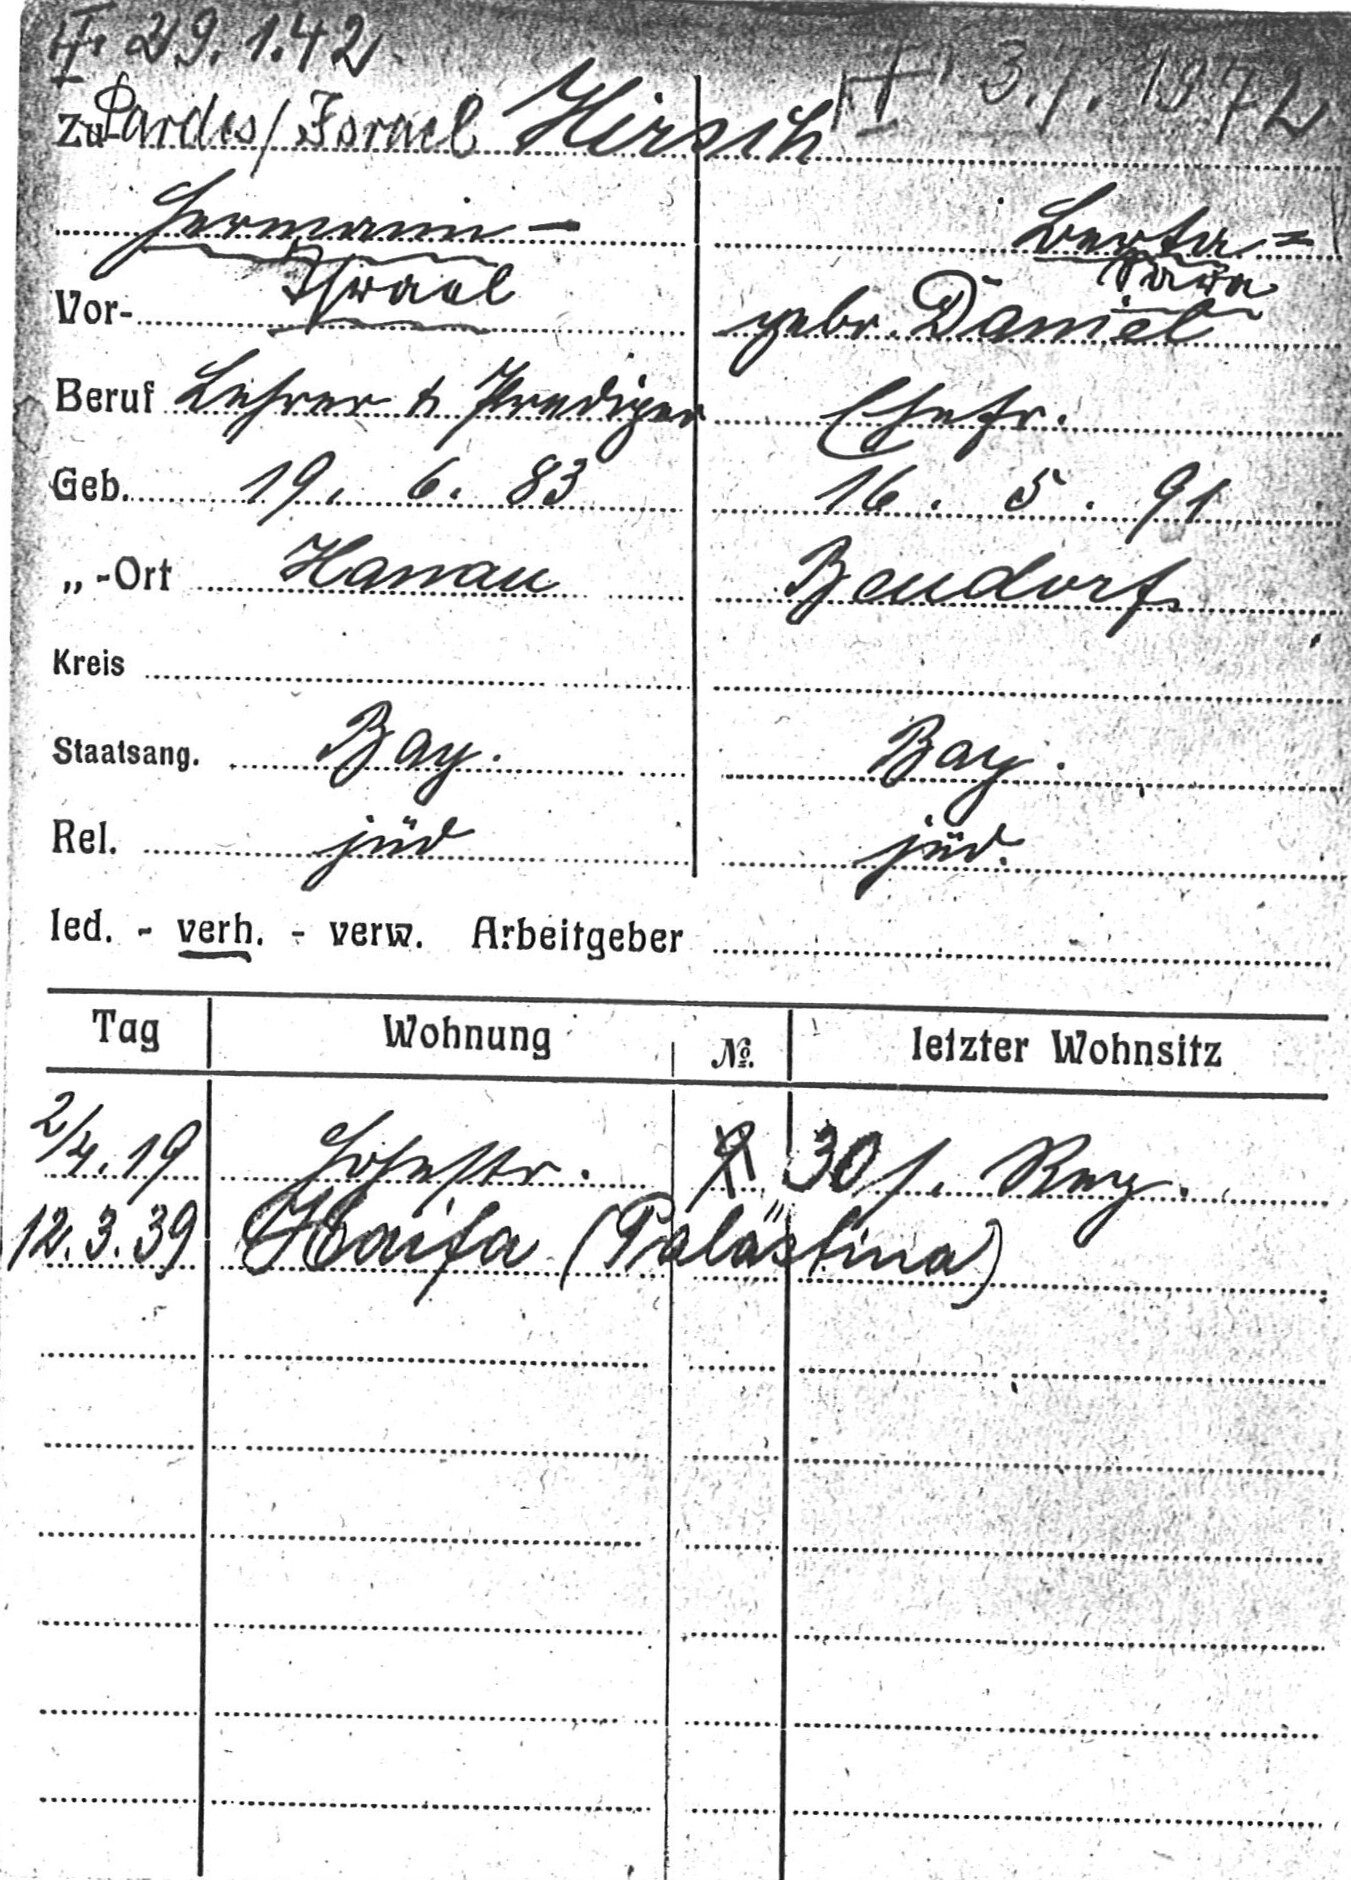 † 29.1.42. † 3.1.1972
zu Pardes/Israel Hirsch
Hermann - Berta =
Israel Sara
Vor- gebr. Daniel
Beruf Lehrer & Prediger Ehefr.
Geb. 19. 6. 83 16. 5. 91
„-Ort Hanau Bendorf
Kreis
Staatsang. Bay. Bay.
Rel. jüd jüd.
led. - verh. - verw. Arbeitgeber
Tag Wohnung №. letzter Wohnsitz
2/4.19 30
12.3.39 Haifa (Palästina)